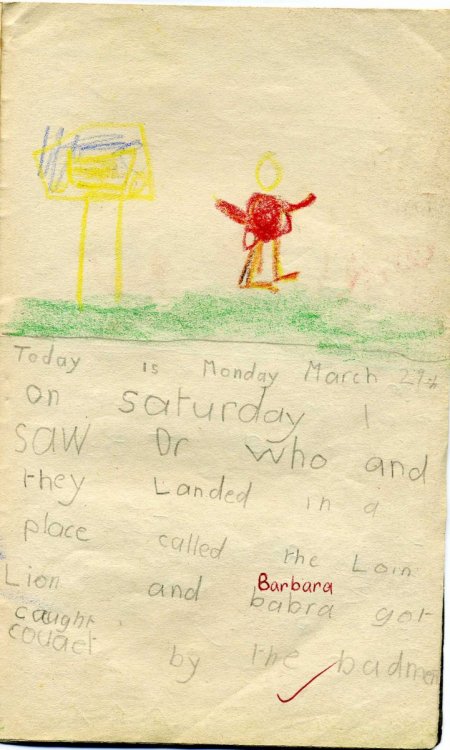 Today is Monday March 29th
on saturday I
saw Dr who and
they Landed in a
place called the Loin
Lion and Barbara babra got
caught
couact by the badmen